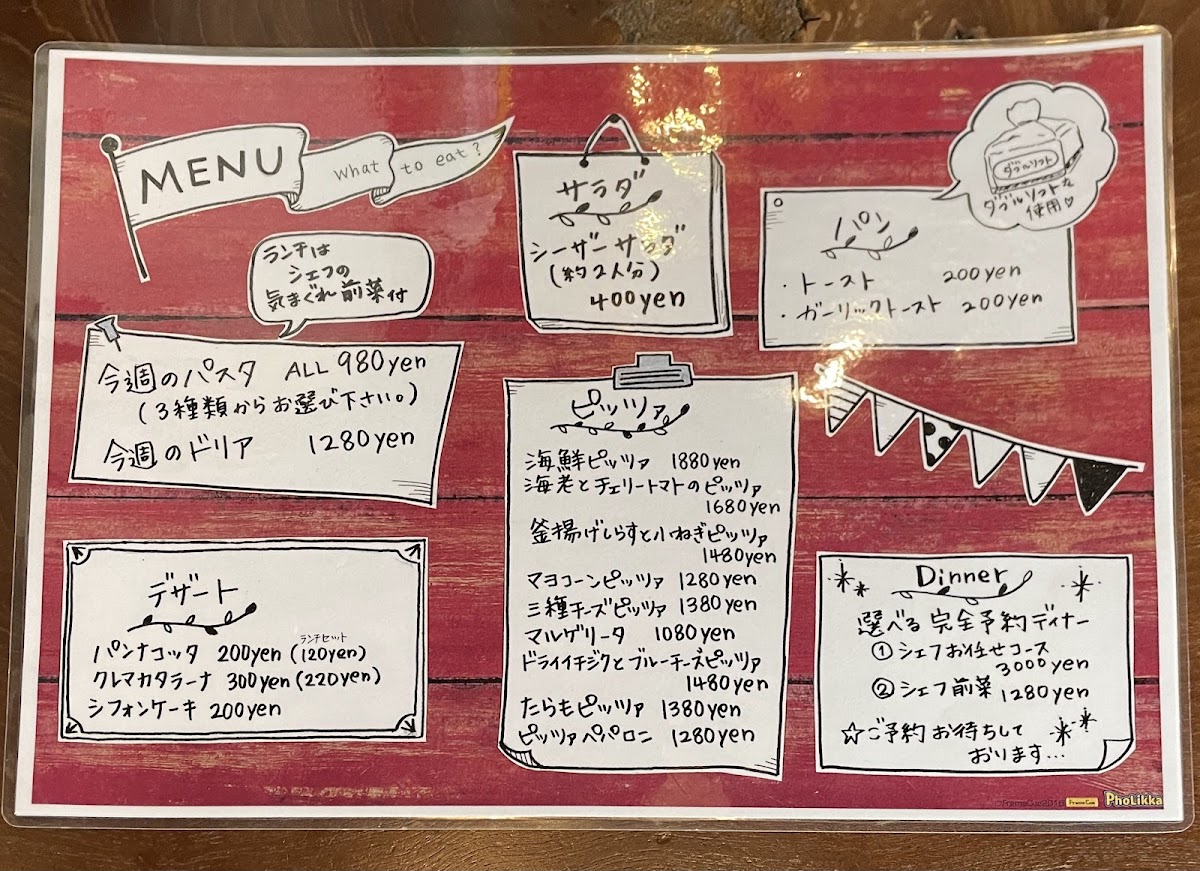 MENU
What to eat?
ランチは
シェフの
気まぐれ前菜付
今週のパスタ ALL 980yen
(3種類からお選び下さい。)
今週のドリア 1280yen
サラダ
シーザーサラダ
(約2人分)
400yen
ダブルソフト
ダブルソフトを
使用♡
パン
・トースト 200yen
・ガーリックトースト 200yen
ピッツァ
海鮮ピッツァ 1880yen
海老とチェリートマトのピッツァ
1680yen
釜揚げしらすと小ねぎピッツァ
1480yen
マヨコーンピッツァ 1280yen
三種チーズピッツァ 1380yen
マルゲリータ 1080yen
ドライイチジクとブルーチーズピッツァ
1480yen
たらもピッツァ 1380yen
ピッツァペパロニ 1280yen
デザート
ランチセット
パンナコッタ 200yen (120yen)
クレマカタラーナ 300yen (220yen)
シフォンケーキ 200yen
Dinner
選べる完全予約ディナー
① シェフお任せコース
3000yen
② シェフ前菜 1280yen
☆ご予約お待ちして
おります...
©FrameCue2016 FrameCue PhoLikka